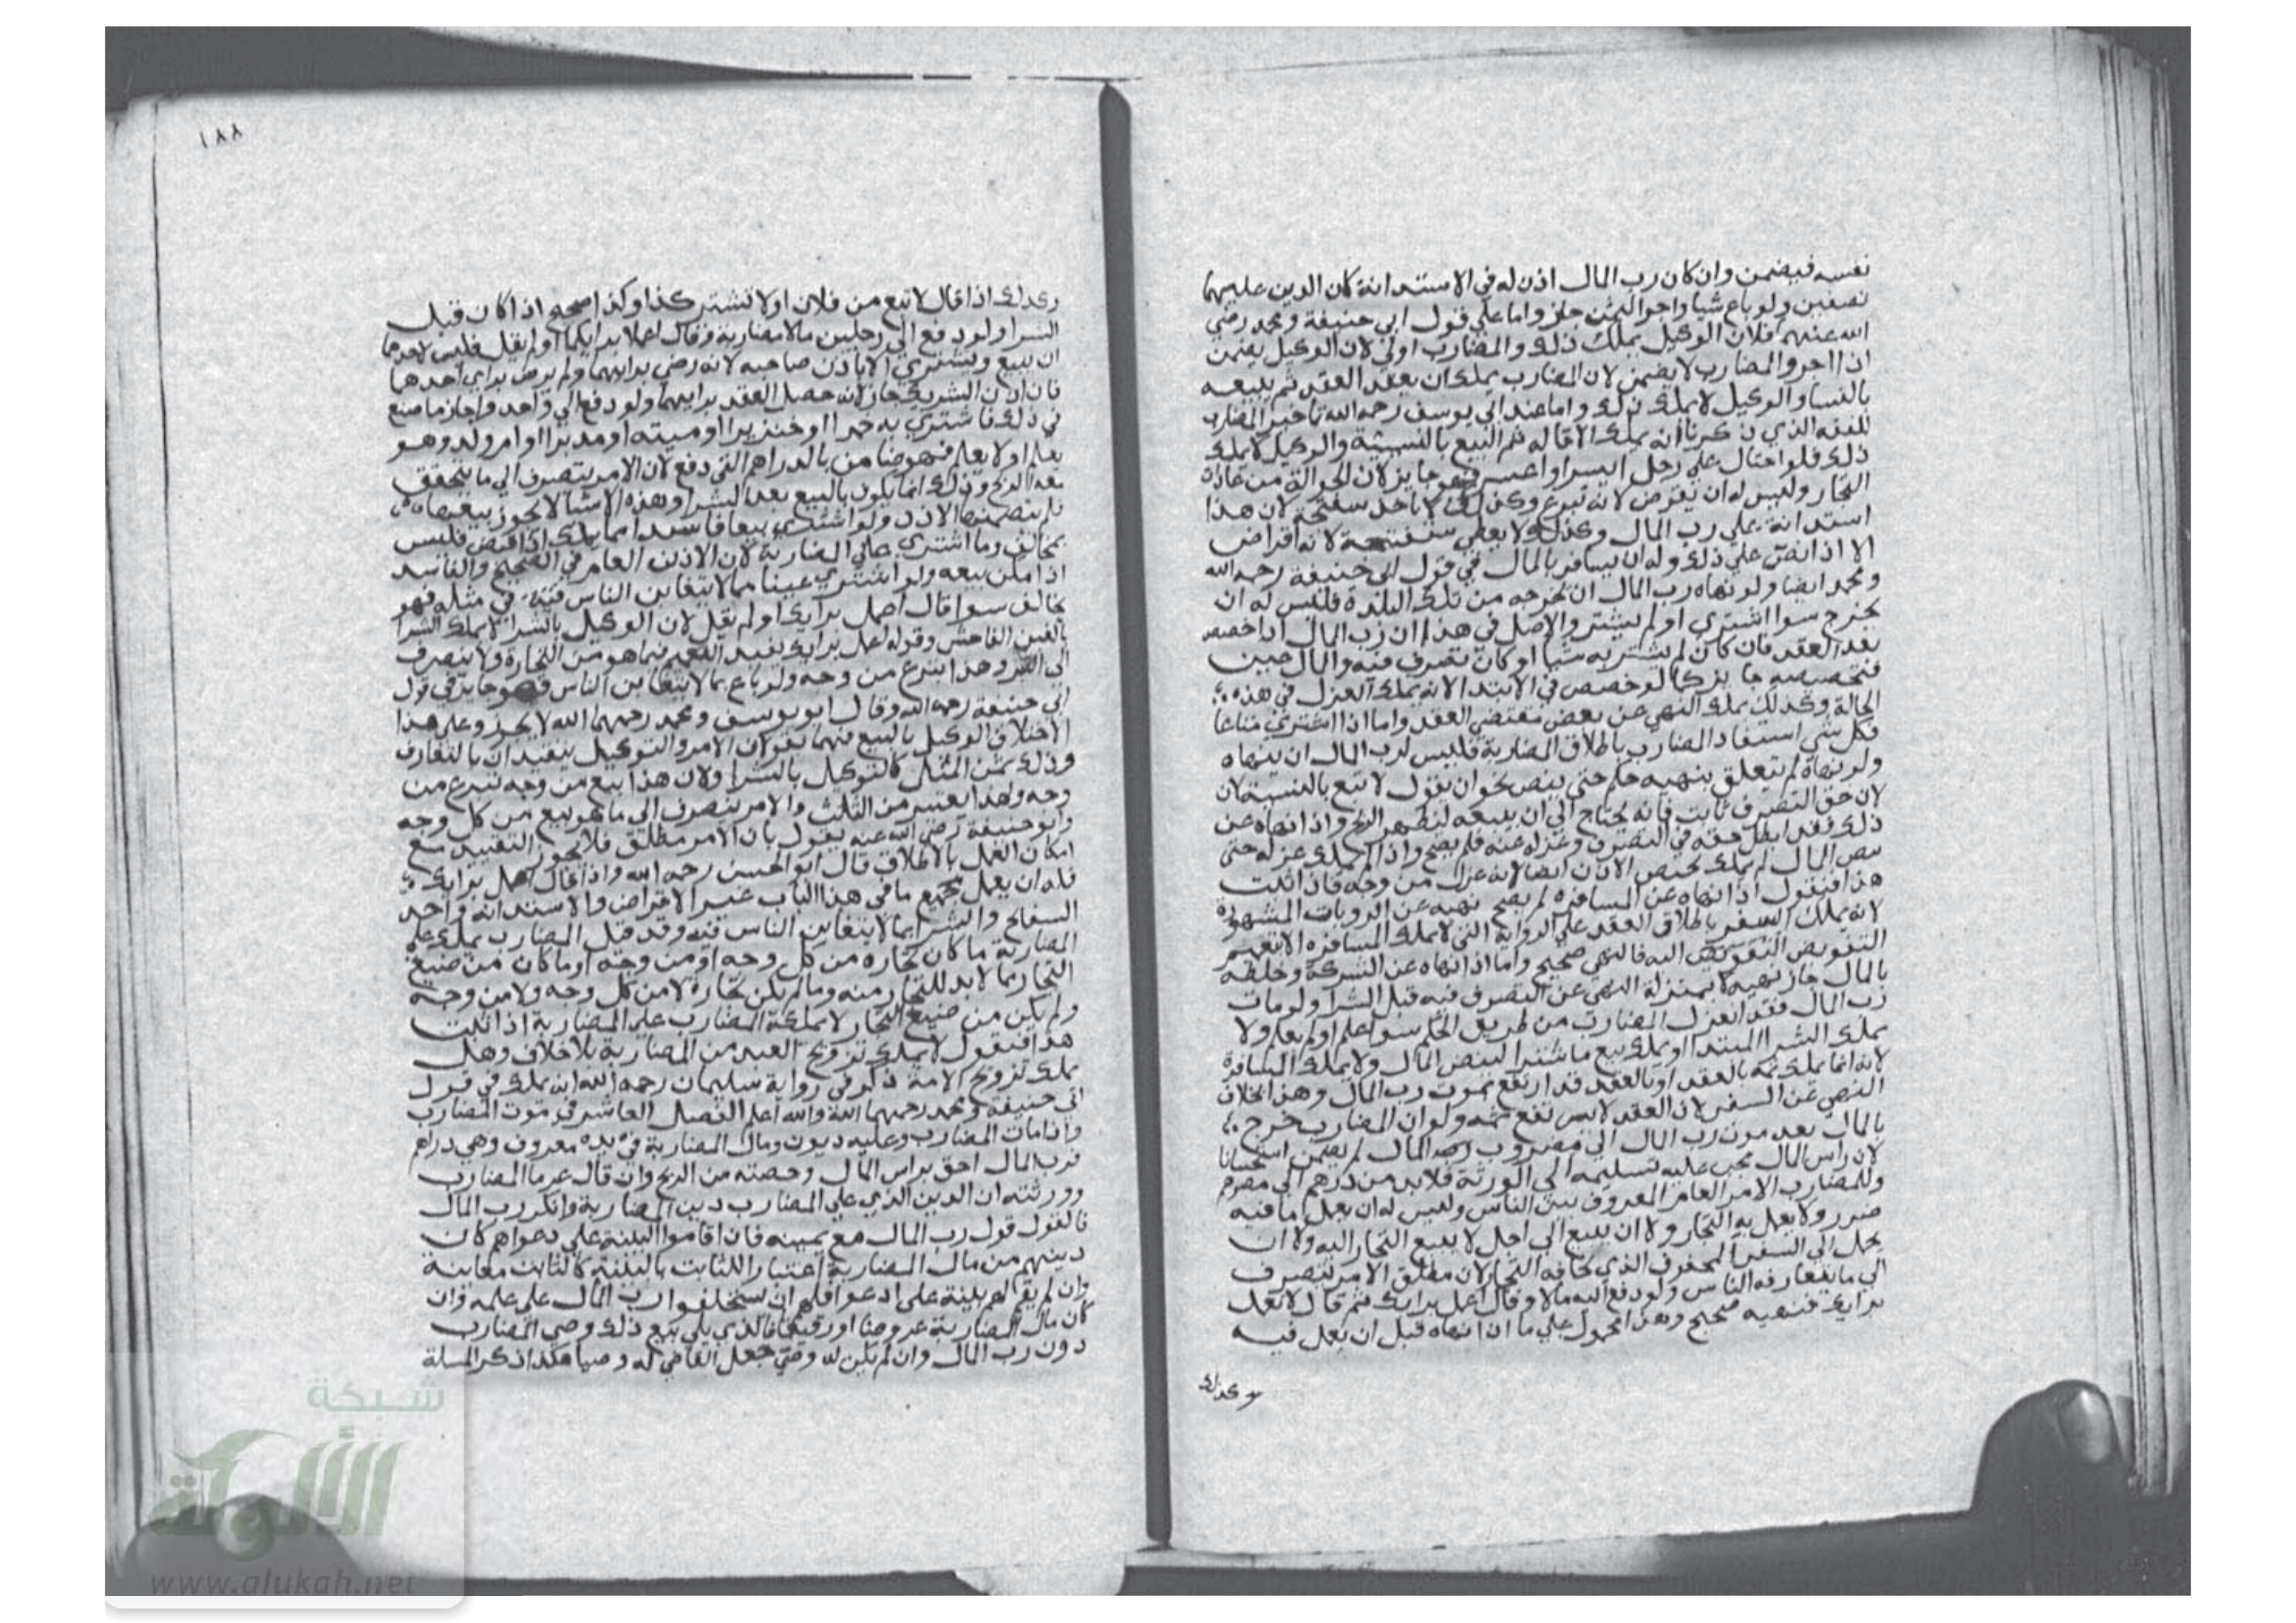 نفسه فيضمن وان كان رب المال اذن له في الاستدانة كان الدين عليهما
نصفين ولو باع شيا واخر الثمن جاز واما علي قول ابي حنيفة ومحمد رضي
الله عنهم فلان الوكيل يملك ذلك والمضارب اولي لان الوكيل يضمن
اذا اخر والمضارب لا يضمن لان المضارب يملك ان يعقد العقد ثم يبيعه
بالنسا والوكيل لا يملك ذلك واما عند ابي يوسف رحمه الله تاخير المضارب
للفقه الذي ذكرنا انه يملك الاقاله ثم البيع بالنسيئة والوكيل لا يملك
ذلك فلو احتال علي رجل ايسر او اعسر فهو جايز لان الحوالة من عادة
التجار وليس له ان يقرض لانه تبرع وكذلك لا ياخذ سفتجة لان هذا
استدانة علي رب المال وكذلك لا يعطي سفتجة لانه اقراض
الا اذا نص علي ذلك وله ان يسافر بالمال في قول ابي حنيفة رحمه الله
ومحمد ايضا ولو نهاه رب المال ان يخرجه من تلك البلدة فليس له ان
يخرج سوا اشتري او لم يشتر والاصل في هذا ان رب المال اذا خصص
بعد العقد فان كان لم يشتر به شيا او كان تصرف فيه والمال حين
فتخصيصه جايز كما لو خصص في الابتدا لانه يملك العزل في هذه
الحالة وكذلك يملك النهي عن بعض مقتضي العقد واما اذا اشتري متاعا
فكل شي استفاد المضارب باطلاق المضاربة فليس لرب المال ان ينهاه
ولو نهاه لم يتعلق بنهيه حكم حتي ينص نحو ان يقول لا تبع بالنسيئة لان
لان حق التصرف ثابت فانه يحتاج الي ان يبيعه ليظهر الربح واذا نهاه عن
ذلك فقد ابطل حقه في التصرف وعزله عنه فلم يصح واذا لم يملك عزله حتي
ينص المال لم يملك تخصيص الاذن ايضا لانه عزل من وجه فاذا ثبت
هذا فنقول اذا نهاه عن المسافرة لم يصح نهيه عن الروايات المشهورة
لانه يملك السفر باطلاق العقد علي الرواية التي لا يملك المسافرة الا بتعميم
التفويض التفويض اليه فالنهي صحيح واما اذا نهاه عن الشركة وخلطه
بالمال جاز نهيه لا بمنزلة النهي عن التصرف فيه قبل الشرا ولو مات
رب المال فقد انعزل المضارب من طريق الحكم سوا علم او لم يعلم ولا
يملك الشرا المبتدا ويملك بيع ما اشترا لينض المال ولا يملك المسافرة
لانه انما يملك ثمه بالعقد او بالعقد قد ارتفع بموت رب المال وهذا بخلاف
النهي عن السفر لان العقد لا يرتفع ثمه ولو ان المضارب خرج
بالمال بعد موت رب المال الي مصر رب المال لم يضمن استحسانا
لان راس المال يجب عليه تسليمه الي الورثة فلا بد من درهم الي مصرهم
وللمضارب الامر العام المعروف بين الناس وليس له ان يعمل ما فيه
ضرر ولا يعمل به التجار ولا ان يبيع الي اجل لا يبيع التجار اليه ولا ان
يحمل الي السفر المخوف الذي تخافه التجار لان مطلق الامر ينصرف
الي ما يتعارفه الناس ولو دفع اليه مالا وقال اعمل برايك ثم قال لا تعمل
برايك فنهيه صحيح وهذا محمول علي ما اذا نهاه قبل ان يعمل فيه
وكذلك
١٨٨
وكذلك اذا قال لا تبع من فلان او لا تشتر كذا وكذا صح اذا كان قبل
الشرا ولو دفع الي رجلين مالا مضاربة وقال اعملا برايكما او لم يقل فليس لاحدهما
ان يبيع ويشتري الا باذن صاحبه لانه رضي برايهما ولم يرض براي احدهما
فان اذن الشريك جاز لانه حصل العقد برايهما ولو دفع الي واحد واجاز ما صنع
في ذلك فاشتري به خمرا او خنزيرا او ميته او مدبرا او ام ولد وهو
يعلم او لا يعلم فهو ضامن بالدراهم التي دفع لان الامر يتصرف الي ما يتحقق
معه الربح وذلك انما يكون بالبيع بعد الشرا وهذه الاشيا لا يجوز بيعها
فلم يتضمنها الاذن ولو اشتري بيعا فاسدا مما يملك اذا قبض فليس
بمخالف وما اشتري علي المضاربة لان الاذن العام في الصحيح والفاسد
اذا امكن بيعه ولو اشتري عينا مما لا يتغابن الناس فيه في مثله فهو
مخالف سوا قال اعمل برايك او لم يقل لان الوكيل بالشرا لا يملك الشرا
بالغبن الفاحش وقوله اعمل برايك يفيد التعميم فيما هو من التجارة ولا ينصرف
الي التبرع وهذا تبرع من وجه ولو باع بما لا يتغابن الناس فهو جايز في قول
ابي حنيفة رحمه الله وقال ابو يوسف ومحمد رحمهما الله لا يجوز وعلي هذا
الاختلاف الوكيل بالبيع فهما يقولان الامر والتوكيل يتقيدان بالتعارف
وذلك بثمن المثل كالتوكيل بالشرا ولان هذا بيع من وجه تبرع من
وجه ولهذا يعتبر من الثلث والامر ينصرف الي ما هو بيع من كل وجه
وابو حنيفة رضي الله عنه يقول بان الامر مطلق فلا يجوز التقييد مع
امكان العمل بالاطلاق قال ابو الحسن رحمه الله واذا قال اعمل برايك
فله ان يعمل بجميع ما في هذا الباب غير الاقراض والاستدانة واخد
السفاتج والشرا بما لا يتغابن الناس فيه وقد قيل المضارب يملك علي
المضاربة ما كان تجارة من كل وجه او من وجه او ما كان من صنيع
التجار مما لا بد للتجار منه وما لم يكن تجارة لا من كل وجه ولا من وجه
ولم يكن من صنيع التجار لا يملكه المضارب علي المضاربة اذا ثبت
هذا فنقول لا يملك تزويج العبد من المضاربة بلا خلاف وهل
يملك تزويج الامة ذكر في رواية سليمان رحمه الله انه يملك في قول
ابي حنيفة ومحمد رحمهما الله والله اعلم الفصل العاشر في موت المضارب
واذا مات المضارب وعليه ديون ومال المضاربة في يده معروف وهي دراهم
فرب المال احق براس المال وحصته من الربح وان قال غرما المضارب
وورثته ان الدين الذي علي المضارب دين المضاربة وانكر رب المال
فالقول قول رب المال مع يمينه فان اقاموا البينة علي دعواهم كان
دينهم من مال المضاربة اعتبارا للثابت بالبينة كالثابت معاينة
وان لم يقم لهم بينة علي ادعوا فلهم ان يستحلفوا رب المال علي علمه وان
كان مال المضاربة عروضا او رقيقا فالذي يلي بيع ذلك وصي المضارب
دون رب المال وان لم يكن له وصي جعل القاضي له وصيا هكذا ذكر المسلة
شبكة
الألوكة
www.alukah.net